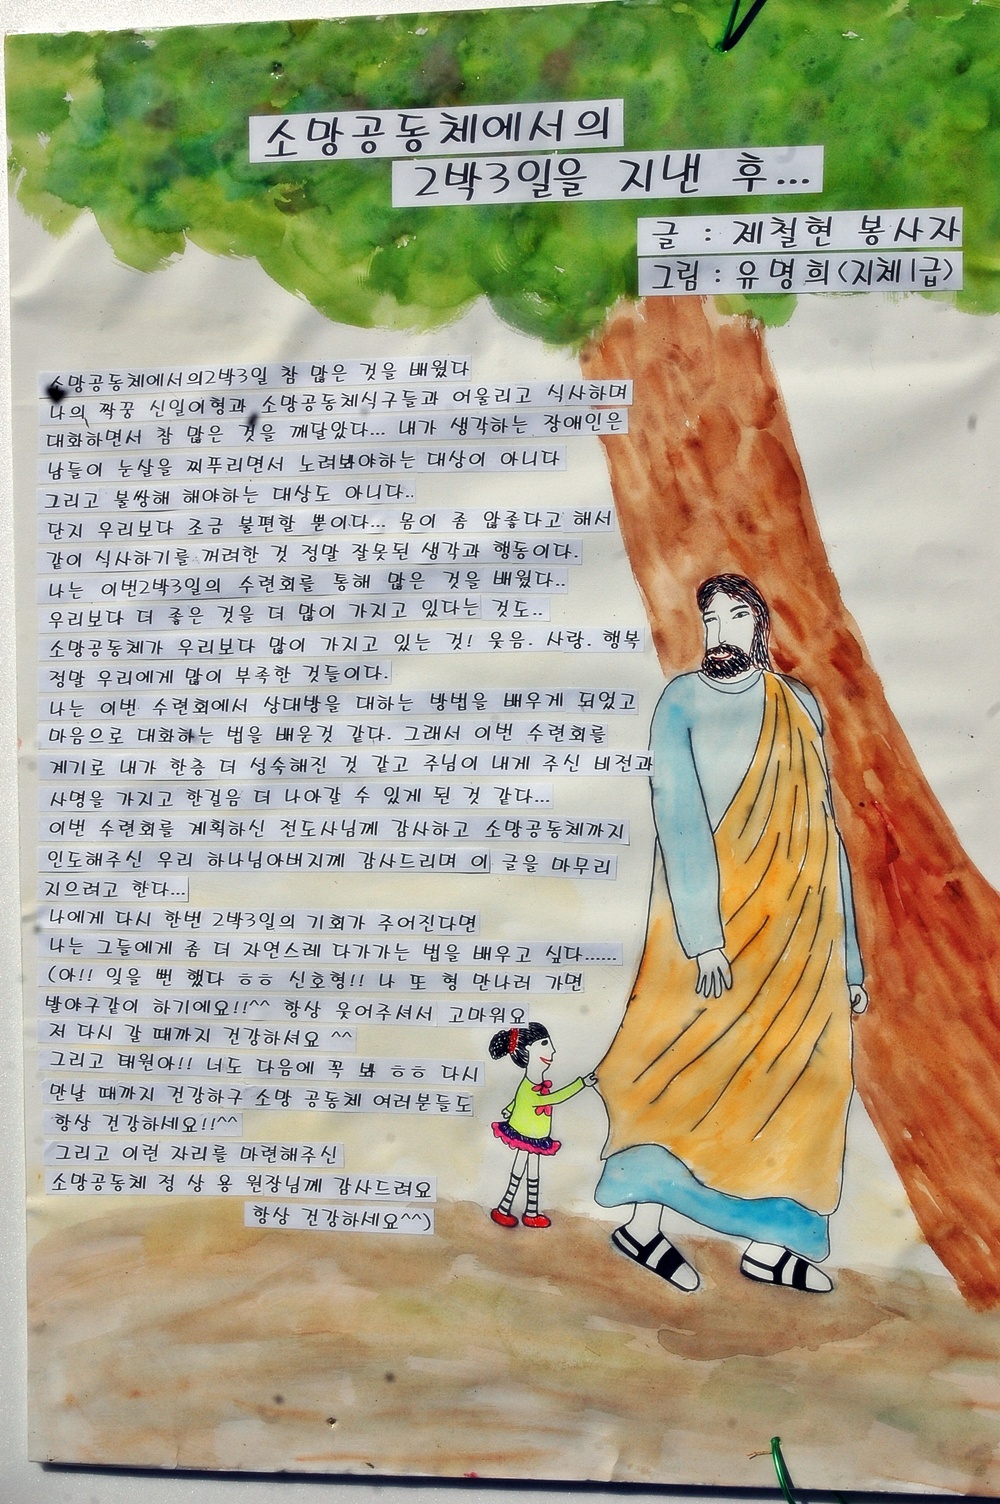 소망공동체에서의
2박3일을 지낸 후...
글 : 제철현 봉사자
그림 : 유명희(지체1급)
소망공동체에서의2박3일 참 많은 것을 배웠다
나의 짝꿍 신일이형과 소망공동체식구들과 어울리고 식사하며
대화하면서 참 많은 것을 깨달았다... 내가 생각하는 장애인은
남들이 눈살을 찌푸리면서 노려봐야하는 대상이 아니다
그리고 불쌍해 해야하는 대상도 아니다..
단지 우리보다 조금 불편할 뿐이다... 몸이 좀 않좋다고 해서
같이 식사하기를 꺼려한 것 정말 잘못된 생각과 행동이다.
나는 이번2박3일의 수련회를 통해 많은 것을 배웠다..
우리보다 더 좋은 것을 더 많이 가지고 있다는 것도..
소망공동체가 우리보다 많이 가지고 있는 것! 웃음. 사랑. 행복
정말 우리에게 많이 부족한 것들이다.
나는 이번 수련회에서 상대방을 대하는 방법을 배우게 되었고
마음으로 대화하는 법을 배운것 같다. 그래서 이번 수련회를
계기로 내가 한층 더 성숙해진 것 같고 주님이 내게 주신 비전과
사명을 가지고 한걸음 더 나아갈 수 있게 된 것 같다...
이번 수련회를 계획하신 전도사님께 감사하고 소망공동체까지
인도해주신 우리 하나님아버지께 감사드리며 이 글을 마무리
지으려고 한다...
나에게 다시 한번 2박3일의 기회가 주어진다면
나는 그들에게 좀 더 자연스레 다가가는 법을 배우고 싶다......
(아!! 잊을 뻔 했다 ㅎㅎ 신호형!! 나 또 형 만나러 가면
발야구같이 하기에요!!^^ 항상 웃어주셔서 고마워요
저 다시 갈 때까지 건강하셔요 ^^
그리고 태원아!! 너도 다음에 꼭 봐 ㅎㅎ 다시
만날 때까지 건강하구 소망 공동체 여러분들도
항상 건강하세요!!^^
그리고 이런 자리를 마련해주신
소망공동체 정 상 용 원장님께 감사드려요
항상 건강하세요^^)